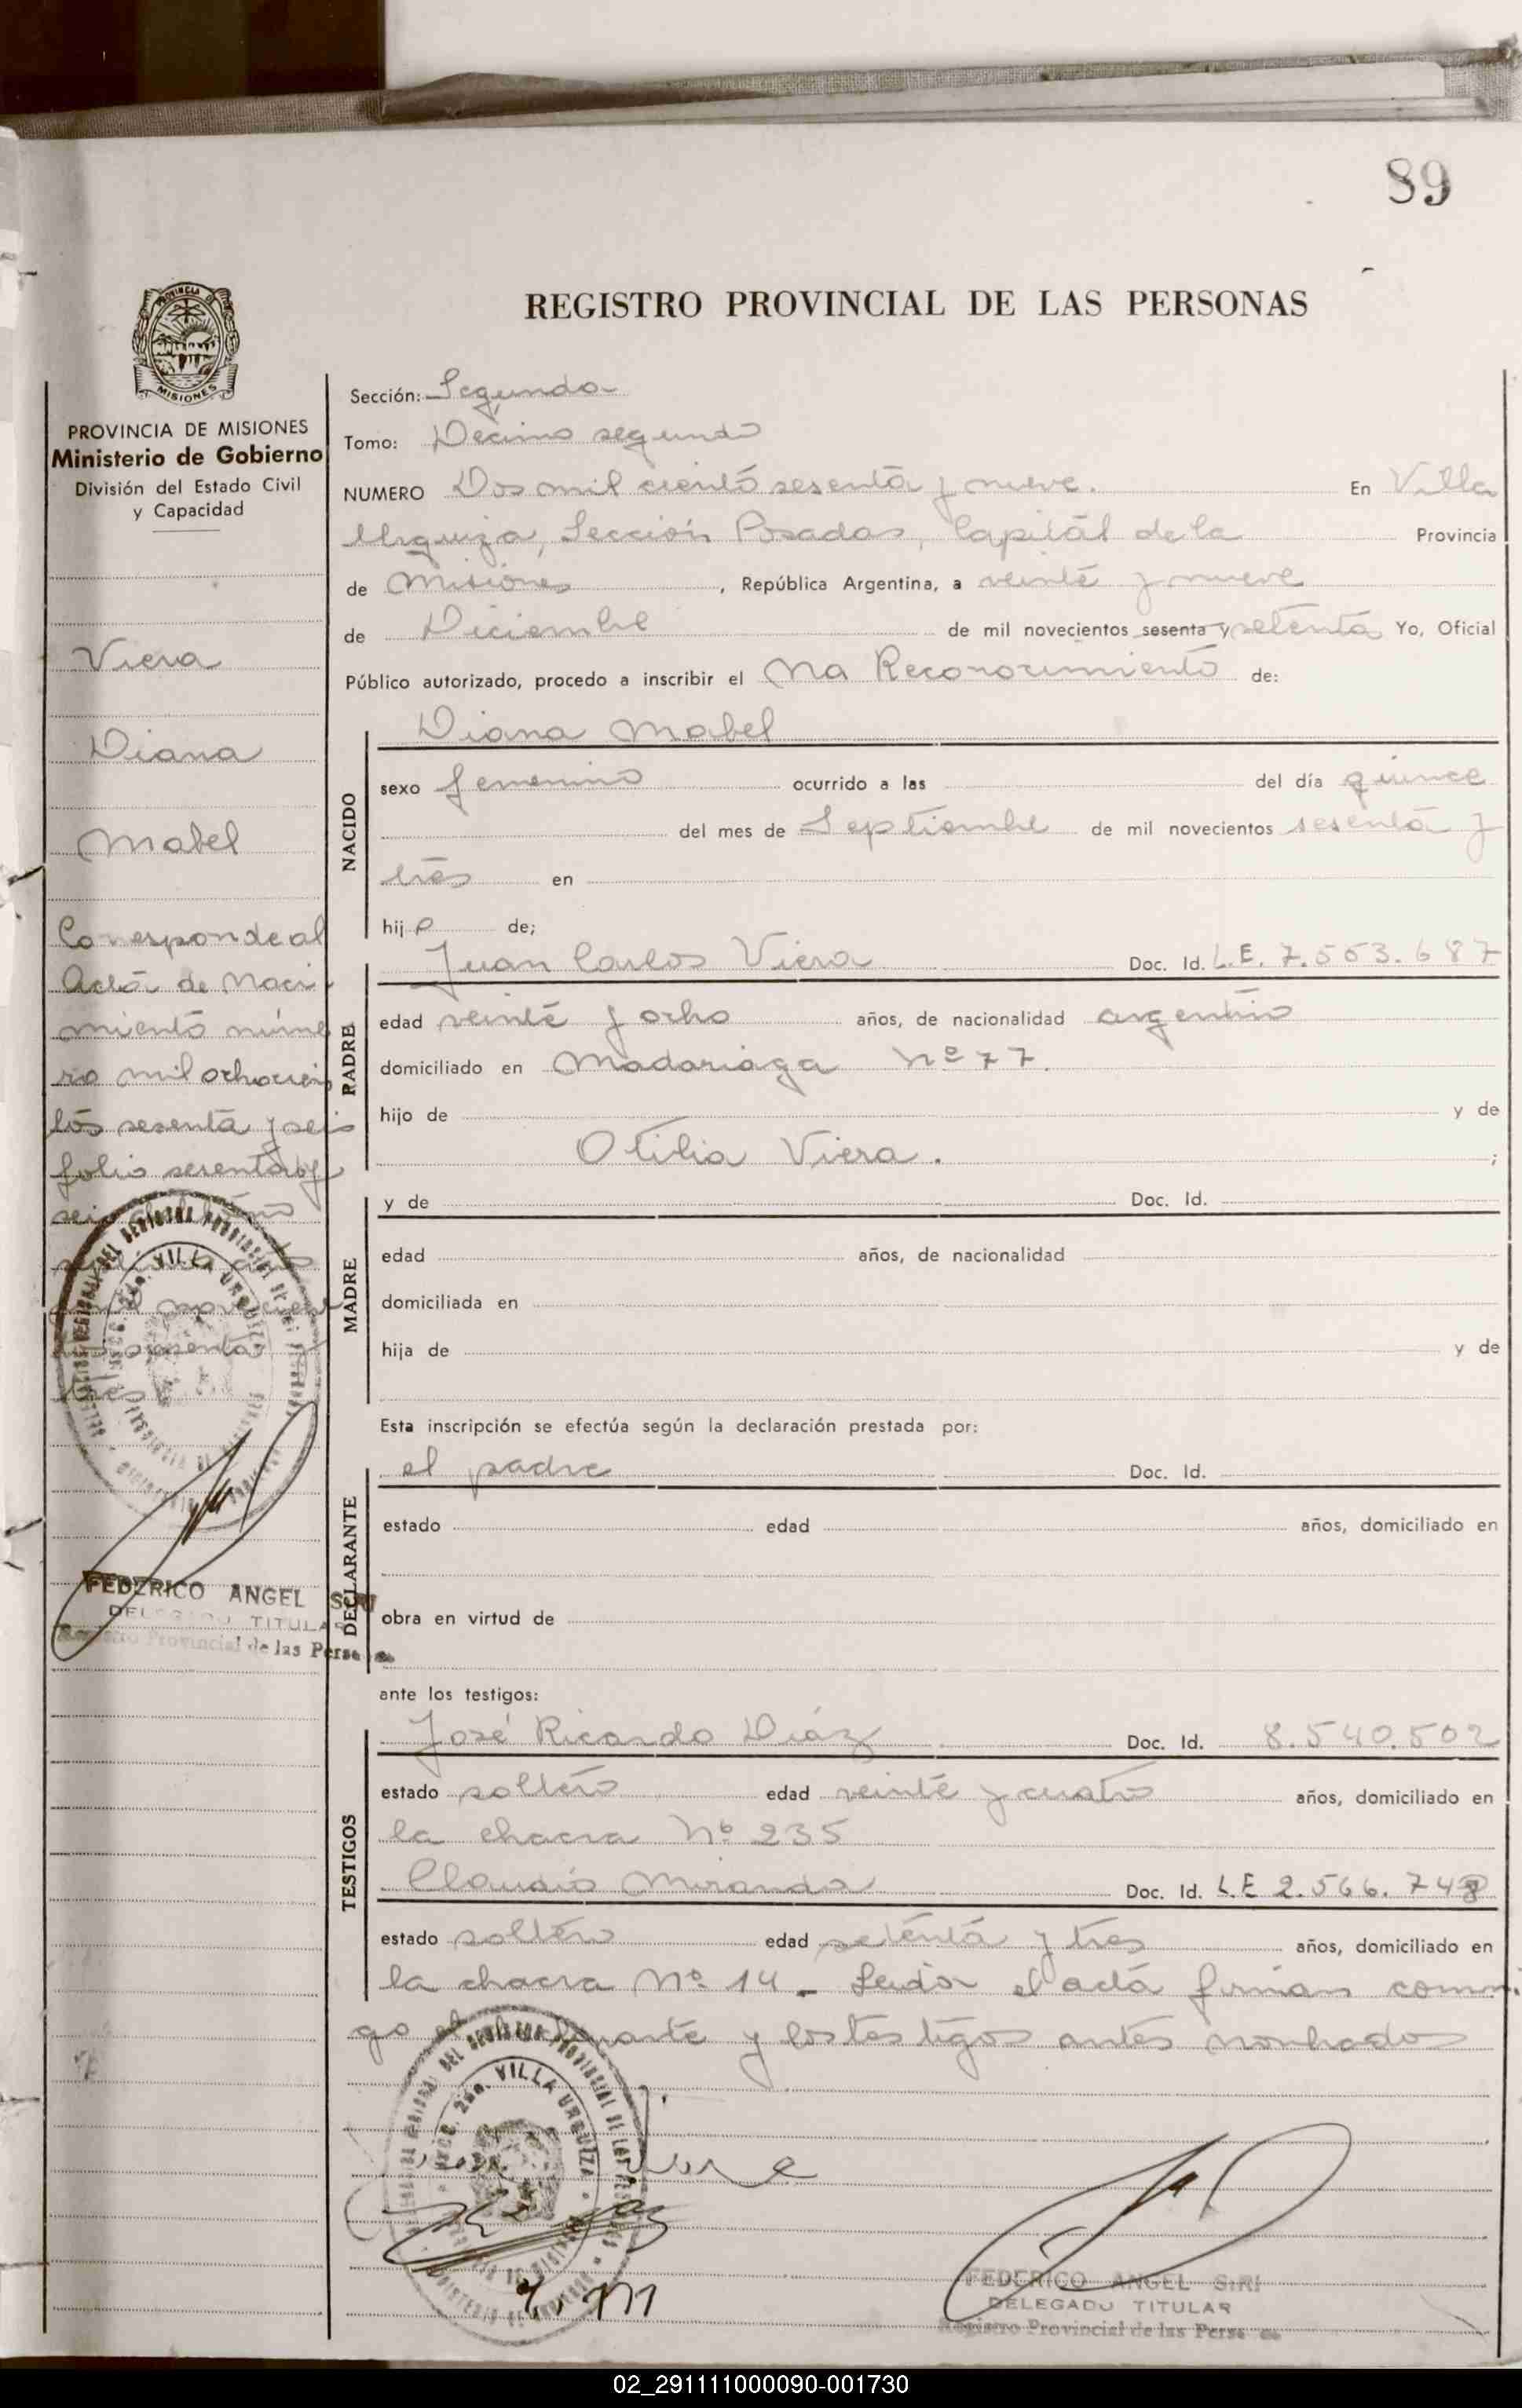 89
PROVINCIA DE
MISIONES
REGISTRO PROVINCIAL DE LAS PERSONAS
PROVINCIA DE MISIONES
Ministerio de Gobierno
División del Estado Civil
y Capacidad
Viera
Diana
Mabel
Corresponde al
Acta de Naci
miento núme
ro mil ochocien
tos sesenta y seis
folio sesenta y
seis
novecien
sesenta y
tres
VILLA URQUIZA
FEDERICO ANGEL SIRI
DELEGADO TITULAR
Registro Provincial de las Perso
Sección: Segunda
Tomo: Décimo segundo
NUMERO Dos mil ciento sesenta y nueve. En Villa
Urquiza, Sección Posadas, Capital de la Provincia
de Misiones, República Argentina, a veinte y nueve
de Diciembre de mil novecientos sesenta y setenta Yo, Oficial
Público autorizado, procedo a inscribir el Na Reconocimiento de:
NACIDO
Diana Mabel
sexo femenino ocurrido a las del día quince
del mes de Septiembre de mil novecientos sesenta y
tres en
hij a de;
PADRE
Juan Carlos Viera Doc. Id. L.E. 7.553.687
edad veinte y ocho años, de nacionalidad argentino
domiciliado en Madariaga Nº 77.
hijo de y de
Otilia Viera. ;
MADRE
y de Doc. Id.
edad años, de nacionalidad
domiciliada en
hija de y de
Esta inscripción se efectúa según la declaración prestada por:
DECLARANTE
el padre Doc. Id.
estado edad años, domiciliado en
obra en virtud de
ante los testigos:
TESTIGOS
José Ricardo Diáz Doc. Id. 8.540.502
estado soltero edad veinte y cuatro años, domiciliado en
la chacra Nº 235
Claudio Miranda Doc. Id. L.E 2.566.748
estado soltero edad setenta y tres años, domiciliado en
la chacra Nº 14 - Leida el acta firman conmi
go el y los testigos antes nombrados
VILLA URQUIZA
FEDERICO ANGEL SIRI
DELEGADO TITULAR
Registro Provincial de las Perso
02_291111000090-001730